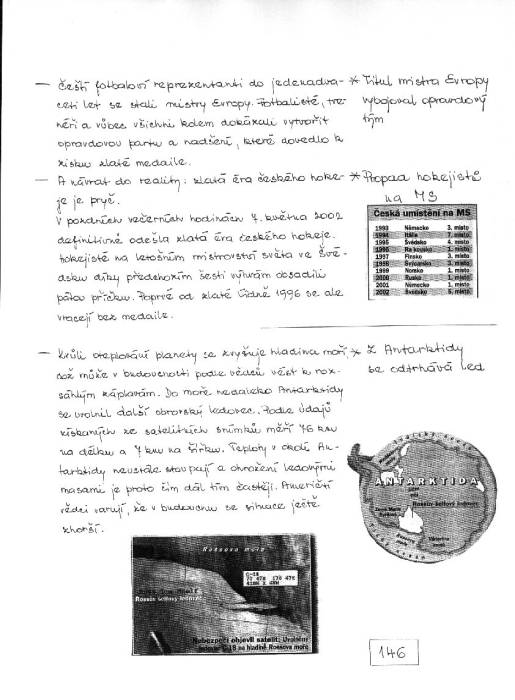 — Čeští fotbaloví reprezentanti do jedenadva-
ceti let se stali mistry Evropy. Fotbalisté, tre-
néři a vůbec všichni kolem dokázali vytvořit
opravdovou partu a nadšení, které dovedlo k
zisku zlaté medaile.
* Titul mistra Evropy
vybojoval opravdový
tým
— A návrat do reality: zlatá éra českého hoke-
je je pryč.
V pozdních večerních hodinách 7. května 2002
definitivně odešla zlatá éra českého hokeje.
Hokejisté na letošním mistrovství světa ve Švé-
dsku díky předchozím šesti výhrám obsadili
pátou příčku. Poprvé od zlaté Vídně 1996 se ale
vracejí bez medaile.
* Propad hokejistů
na MS
Česká umístění na MS
1993 Německo 3. místo
1994 Itálie 7. místo
1995 Švédsko 4. místo
1996 Rakousko 1. místo
1997 Finsko 3. místo
1998 Švýcarsko 3. místo
1999 Norsko 1. místo
2000 Rusko 1. místo
2001 Německo 1. místo
2002 Švédsko 5. místo
— Kvůli oteplování planety se zvyšuje hladina moří,
což může v budoucnosti podle vědců vést k roz-
sáhlým záplavám. Do moře nedaleko Antarktidy
se uvolnil další obrovský ledovec. Podle údajů
získaných ze satelitních snímků měří 76 km
na délku a 7 km na šířku. Teploty v okolí An-
tarktidy neustále stoupají a ohrožení ledovými
masami je proto čím dál tím častější. Američtí
vědci varují, že v budoucnu se situace ještě
zhorší.
* Z Antarktidy
se odtrhává led
ANTARKTIDA
Rossův šelfový ledovec
Rossovo moře
C-18
Rossův šelfový ledovec
Nebezpečí objevil satelit: Uvolněný
ledovec C-18 na hladině Rossova moře
146